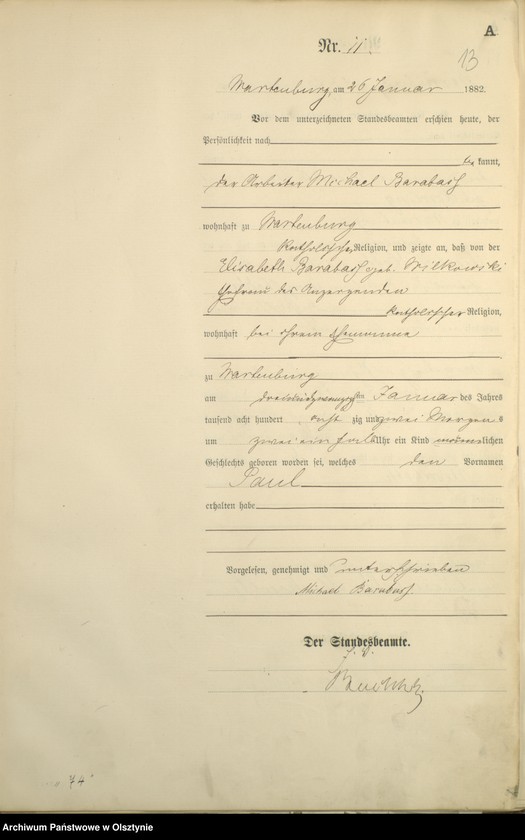 A
Nr. 11.
13
Wartenburg, am 26 Januar 1882.
Vor dem unterzeichneten Standesbeamten erschien heute, der
Persönlichkeit nach
be kannt,
der Arbeiter Michael Barabasch
wohnhaft zu Wartenburg
katholischer Religion, und zeigte an, daß von der
Elisabeth Barabasch geb. Wilkowski
Ehefrau des Anzeigenden
katholischer Religion,
wohnhaft bei ihrem Ehemanne
zu Wartenburg
am dreiundzwanzigsten Januar des Jahres
tausend acht hundert acht zig und zwei Morgens
um zwei ein halb Uhr ein Kind männlichen
Geschlechts geboren worden sei, welches den Vornamen
Paul
erhalten habe
Vorgelesen, genehmigt und unterschrieben
Michael Barabasch
Der Standesbeamte.
74
Archiwum Państwowe w Olsztynie